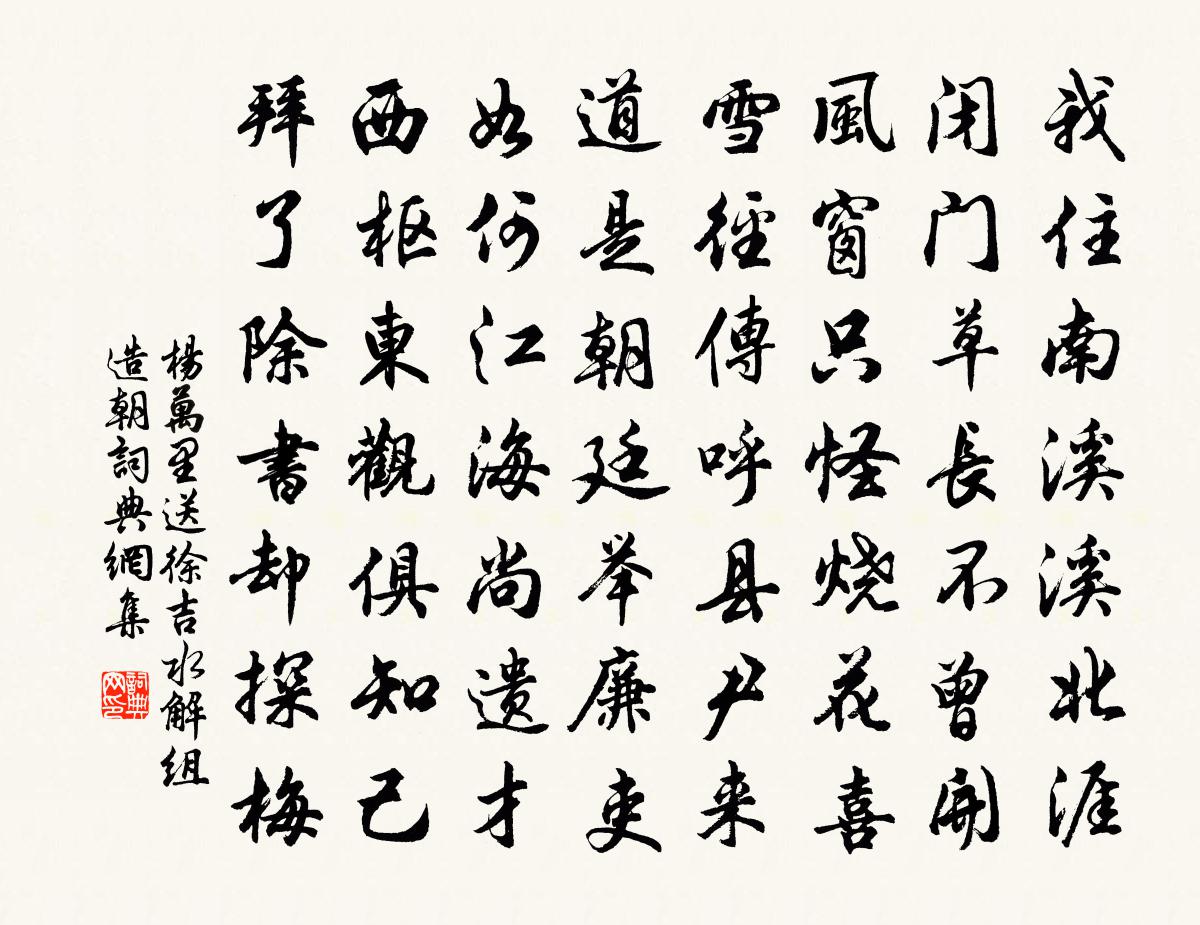 我住南溪溪北涯
闭门草长不曾開
風窗只怪烧花喜
雪徑傳呼县尹来
道是朝廷举廉吏
如何江海尚遗才
西枢東觀俱知己
拜了除書却探梅
楊萬里送徐吉水解组
造朝詞典網集
詞典网印